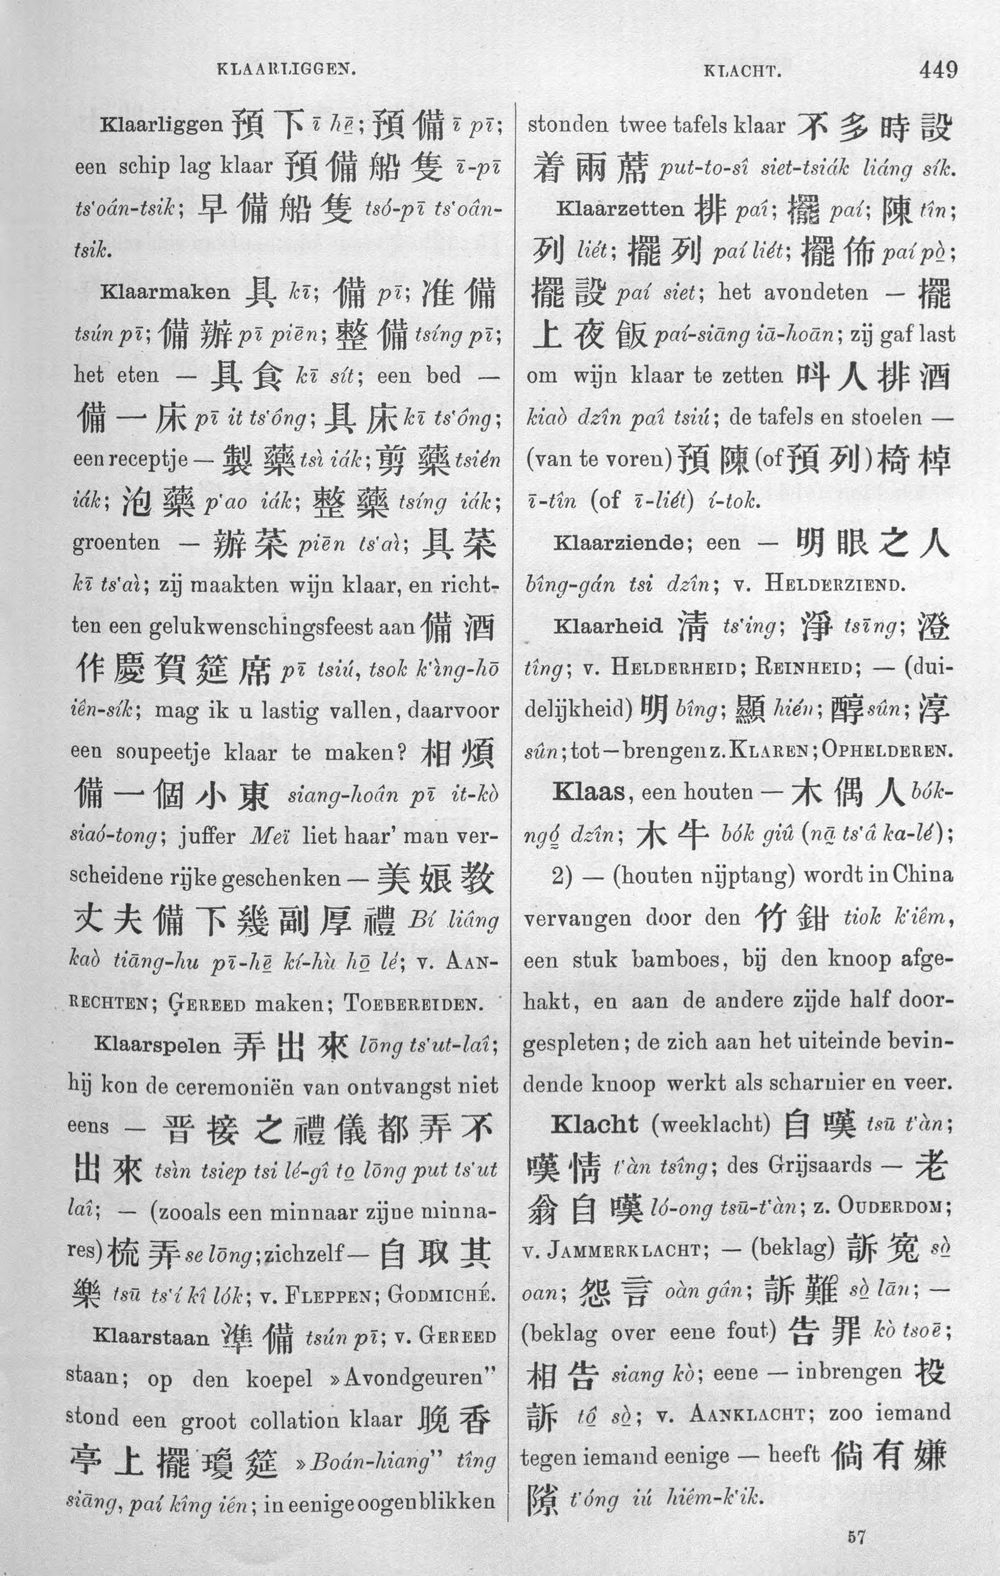 KLAARLIGGEN.
KLACHT. 449
Klaarliggen 預下 ī hē̤; 預備 ī pī;
een schip lag klaar 預備船隻 ī-pī
ts'oán-tsik; 早備船隻 tsó-pī ts'oân-
tsik.
Klaarmaken 具 kī; 備 pī; 准備
tsún pī; 備辦 pī piēn; 整備 tsíng pī;
het eten — 具食 kī sít; een bed —
備一床 pī it ts'ông; 具床 kī ts'ông;
een receptje — 製藥 tsì iák; 剪藥 tsién
iák; 泡藥 p'ao iák; 整藥 tsíng iák;
groenten — 辦菜 piēn ts'aì; 具菜
kī ts'aì; zij maakten wijn klaar, en richt-
ten een gelukwenschingsfeest aan 備酒
作慶賀筵席 pī tsiú, tsok k'ìng-hō
iên-sík; mag ik u lastig vallen, daarvoor
een soupeetje klaar te maken? 相煩
備一個小東 siang-hoân pī it-kò
siaó-tong; juffer Meï liet haar' man ver-
scheidene rijke geschenken — 美娘教
丈夫備下幾副厚禮 Bí liâng
kaò tiāng-hu pī-hē̤ kí-hù hō̤ lé; v. AAN-
RECHTEN; GEREED maken; TOEBEREIDEN.
Klaarspelen 弄出來 lōng ts'ut-laî;
hij kon de ceremoniën van ontvangst niet
eens — 晋接之禮儀都弄不
出來 tsìn tsiep tsi lé-gî to̤ lōng put ts'ut
laî; — (zooals een minnaar zijne minna-
res) 梳弄 se lōng; zichzelf — 自取其
樂 tsū ts'í kî lók; v. FLEPPEN; GODMICHÉ.
Klaarstaan 準備 tsún pī; v. GEREED
staan; op den koepel »Avondgeuren"
stond een groot collation klaar 晚香
亭上擺瓊筵 »Boán-hiang" tîng
siāng, paí kîng iên; in eenige oogenblikken
stonden twee tafels klaar 不多時設
着兩蓆 put-to-sî siet-tsiák liáng sík.
Klaarzetten 排 paî; 擺 paí; 陳 tîn;
列 liét; 擺列 paí liét; 擺佈 paí pò̤;
擺設 paí siet; het avondeten — 擺
上夜飯 paí-siāng iā-hoān; zij gaf last
om wijn klaar te zetten 叫人排酒
kiaò dzîn paî tsiú; de tafels en stoelen —
(van te voren) 預陳 (of 預列) 椅棹
ī-tîn (of ī-liét) í-tok.
Klaarziende; een — 明眼之人
bîng-gán tsi dzîn; v. HELDERZIEND.
Klaarheid 淸 ts'ing; 淨 tsīng; 澄
tîng; v. HELDERHEID; REINHEID; — (dui-
delijkheid) 明 bîng; 顯 hién; 醇 sûn; 淳
sûn; tot — brengen z. KLAREN; OPHELDEREN.
Klaas, een houten — 木偶人 bók-
ngó̤ dzîn; 木牛 bók giû (nā̤ ts'â ka-lé);
2) — (houten nijptang) wordt in China
vervangen door den 竹鉗 tiok k'iêm,
een stuk bamboes, bij den knoop afge-
hakt, en aan de andere zijde half door-
gespleten; de zich aan het uiteinde bevin-
dende knoop werkt als scharnier en veer.
Klacht (weeklacht) 自嘆 tsū t'àn;
嘆情 t'àn tsîng; des Grijsaards — 老
翁自嘆 ló-ong tsū-t'àn; z. OUDERDOM;
v. JAMMERKLACHT; — (beklag) 訴冤 sò̤
oan; 怨言 oàn gân; 訴難 sò̤ lān; —
(beklag over eene fout) 告罪 kò tsoē;
相告 siang kò; eene — inbrengen 投
訴 tô̤ sò̤; v. AANKLACHT; zoo iemand
tegen iemand eenige — heeft 倘有嫌
隙 t'óng iú hiêm-k'ik.
57